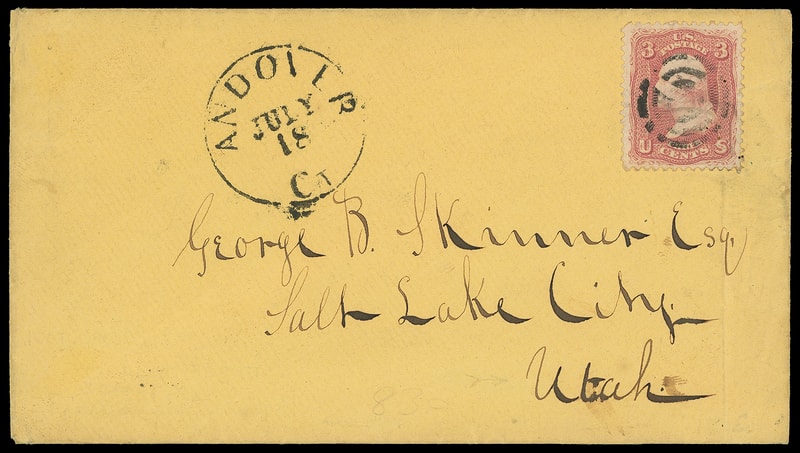 ANDOVER
JULY
18
Ct
3 U.S. 3
POSTAGE
U S
CENTS
George B. Skinner Esq.
Salt Lake City
Utah